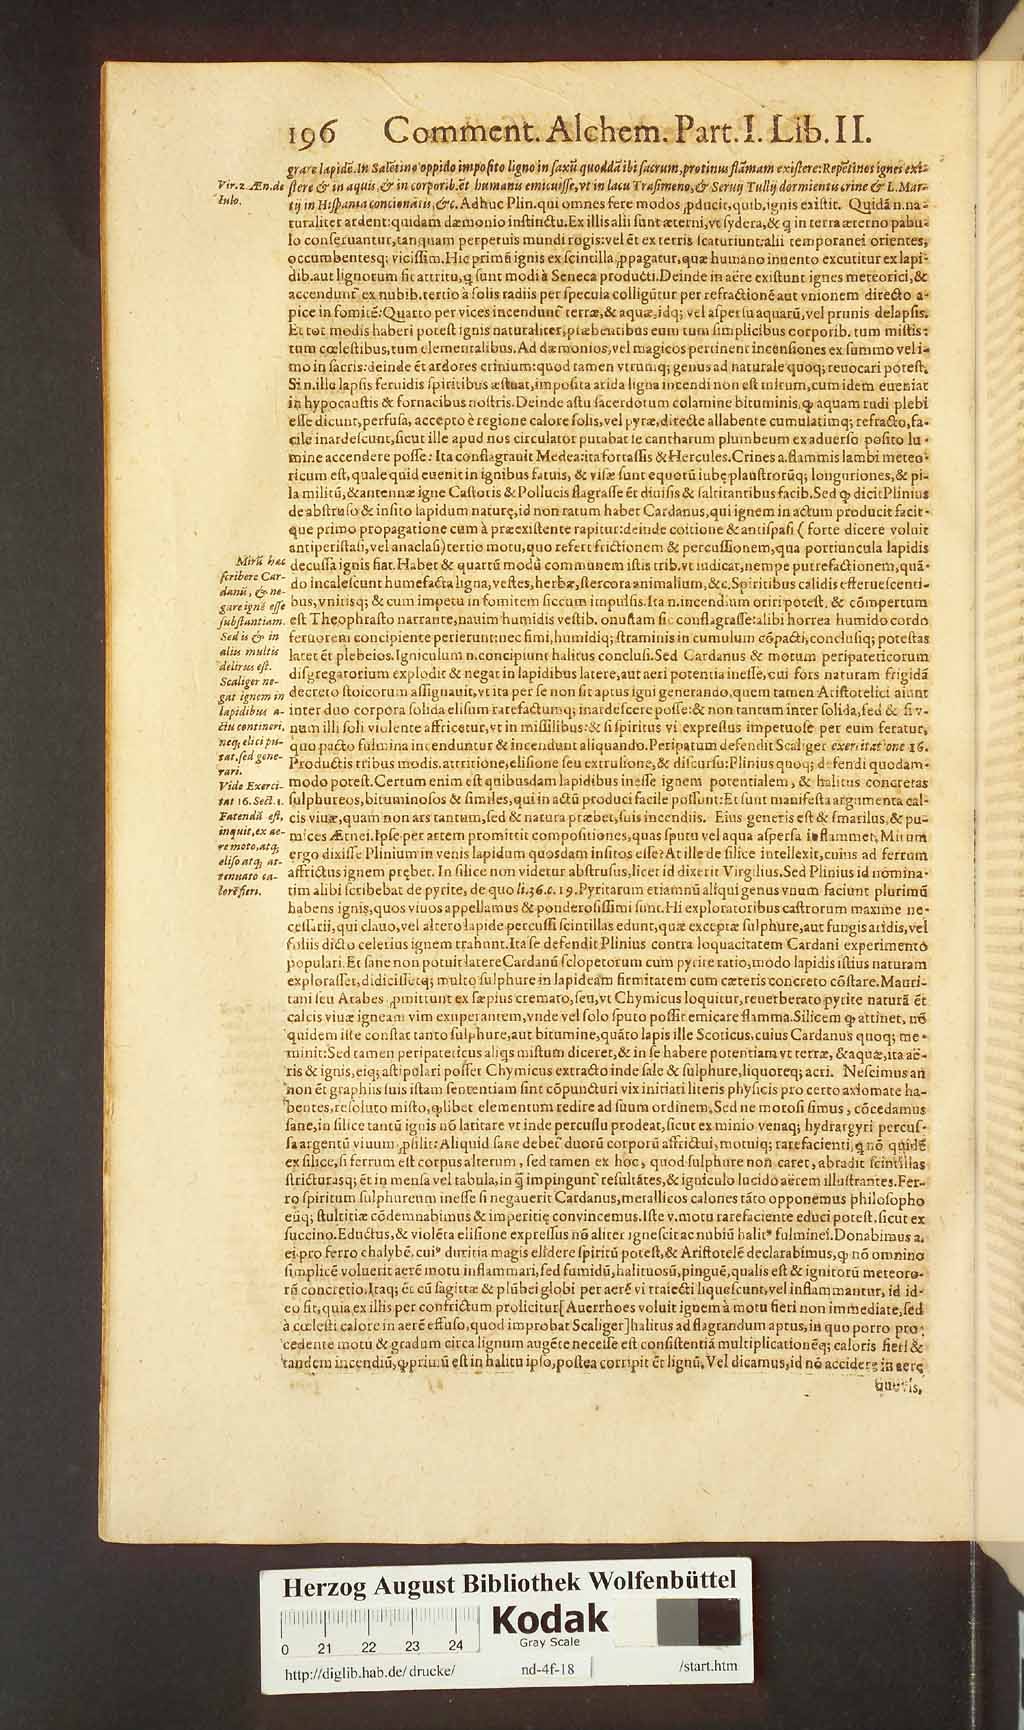 196 Comment. Alchem. Part. I. Lib. II.
grare lapidē. In Salētino oppido imposito ligno in saxū quoddā ibi sacrum, protinus flāmam existere: Repētinos ignes exi-
stere & in aquis, & in corporib. ēt humanis emicuisse, vt in lacu Trasimeno, & Seruij Tullij dormientis crine & L. Mar-
tij in Hispania concionātis, &c. Adhuc Plin. qui omnes fere modos ꝓducit, quib. ignis existit. Quidā n. na-
turaliter ardent: quidam dæmonio instinctu. Ex illis alii sunt æterni, vt sydera, & q in terra æterno pabu-
lo conseruantur, tanquam perpetuis mundi rogis: vel ēt ex terris scaturiunt: alii temporanei orientes,
occumbentesq; vicissim. Hic primū ignis ex scintilla ꝓpagatur, quæ humano inuento excutitur ex lapi-
dib. aut lignorum fit attritu, q̄ sunt modi à Seneca producti. Deinde in aëre existunt ignes meteorici, &
accendunt̃ ex nubib. tertio à solis radiis per specula colligūtur per refractionē aut vnionem directo a-
pice in fomitē: Quarto per vices incendunt̃ terræ, & aquæ, idq; vel aspersu aquarū, vel prunis delapsis.
Et tot modis haberi potest ignis naturaliter, præbentibus eum tum simplicibus corporib. tum mistis:
tum cœlestibus, tum elementalibus. Ad dæmonios, vel magicos pertinent incensiones ex summo veli-
mo in sacris: deinde ēt ardores crinium: quod tamen vtrumq; genus ad naturale quoq; reuocari potest.
Si n. illa lapsis feruidis spiritibus æstuat, imposita arida ligna incendi non est mirum, cum idem eueniat
in hypocaustis & fornacibus nostris. Deinde astu sacerdotum colamine bituminis, qď aquam rudi plebi
esse dicunt, perfusa, accepto è regione calore solis, vel pyræ, directe allabente cumulatimq; refracto, fa-
cile inardescunt, sicut ille apud nos circulator putabat se cantharum plumbeum ex aduerso posito lu-
mine accendere posse: Ita conflagrauit Medea: ita fortassis & Hercules. Crines a. flammis lambi meteo-
ricum est, quale quid euenit in ignibus fatuis, & visæ sunt equorū iubę plaustrorūq; longuriones, & pi-
la militū, & antennæ igne Castoris & Pollucis flagrasse ēt diuisis & saltitantibus facib. Sed qď dicit Plinius
de abstruso & insito lapidum naturę, id non ratum habet Cardanus, qui ignem in actum producit facit-
que primo propagatione cum à præexistente rapitur: deinde coitione & antispasi (forte dicere voluit
antiperistasi, vel anaclasi) tertio motu, quo refert frictionem & percussionem, qua portiuncula lapidis
decussa ignis fiat. Habet & quartū modū communem istis trib. vt iudicat, nempe putrefactionem, quā-
do incalescunt humefacta ligna, vestes, herbæ, stercora animalium, &c. Spiritibus calidis efferuescenti-
bus, vnitisq; & cum impetu in fomitem siccum impulsis. Ita n. incendium oriri potest, & cōmpertum
est Theophrasto narrante, nauim humidis vestib. onustam sic conflagrasse: alibi horrea humido cordo
feruorem concipiente perierunt: nec fimi, humidiq; straminis in cumulum cōpacti, conclusiq; potestas
latet ēt plebeios. Igniculum n. concipiunt halitus conclusi. Sed Cardanus & motum peripateticorum
disgregatorium explodit & negat in lapidibus latere, aut aeri potentia inesse, cui fors naturam frigidā
decreto stoicorum assignauit, vt ita per se non sit aptus igni generando, quem tamen Aristotelici aiunt
inter duo corpora solida elisum rarefactumq; inardescere posse: & non tantum inter solida, sed & si v-
num illi soli violente affricetur, vt in missilibus: & si spiritus vi expressus impetuose per eum feratur,
quo pacto fulmina incenduntur & incendunt aliquando. Peripatum defendit Scaliger exercitatione 16.
Productis tribus modis, attritione, elisione seu extrusione, & discursu: Plinius quoq; defendi quodam-
modo potest. Certum enim est quibusdam lapidibus inesse ignem potentialem, & halitus concretas
sulphureos, bituminosos & similes, qui in actū produci facile possunt: Et sunt manifesta argumenta cal-
cis viuæ, quam non ars tantum, sed & natura præbet, suis incendiis. Eius generis est & smarilus, & pu-
mices Ætnei. Ipse per artem promittit compositiones, quas sputu vel aqua aspersa inflammet, Mirum
ergo dixisse Plinium in venis lapidum quosdam insitos esse? At ille de silice intellexit, cuius ad ferrum
affrictus ignem prębet. In silice non videtur abstrusus, licet id dixerit Virgilius. Sed Plinius id nomina-
tim alibi scribebat de pyrite, de quo li. 36. c. 19. Pyritarum etiamnū aliqui genus vnum faciunt plurimū
habens ignis, quos viuos appellamus & ponderosissimi sunt. Hi exploratoribus castrorum maxime ne-
cessarii, qui clauo, vel altero lapide percussi scintillas edunt, quæ exceptæ sulphure, aut fungis aridis, vel
foliis dicto celerius ignem trahunt. Ita se defendit Plinius contra loquacitatem Cardani experimento
populari. Et sane non potuit latere Cardanū sclopetorum cum pyrite ratio, modo lapidis istius naturam
explorasset, didicissetq; multo sulphure in lapideam firmitatem cum cæteris concreto cōstare. Mauri-
tani seu Arabes ꝓmittunt ex sæpius cremato, seu, vt Chymicus loquitur, reuerberato pyrite naturā ēt
calcis viuæ igneam vim exuperantem, vnde vel solo sputo possit emicare flamma. Silicem qď attinet, nō
quidem iste constat tanto sulphure, aut bitumine, quāto lapis ille Scoticus, cuius Cardanus quoq; me-
minit: Sed tamen peripateticus aliqs mistum diceret, & in se habere potentiam vt terræ, & aquæ, ita aë-
ris & ignis, eiq; astipulari posset Chymicus extracto inde sale & sulphure, liquoreq; acri. Nescimus an
non ēt graphiis suis istam sententiam sint cōpuncturi vix initiati literis physicis pro certo axiomate ha-
bentes, resoluto misto, qďlibet elementum redire ad suum ordinem. Sed ne morosi simus, cōcedamus
sane, in silice tantū ignis nō latitare vt inde percussu prodeat, sicut ex minio venaq; hydrargyri percus-
sa argentū viuum ꝓsilit: Aliquid sane debet̃ duorū corporū affrictui, motuiq; rarefacienti, q̄ nō quidē
ex silice, si ferrum est corpus alterum, sed tamen ex hoc, quod sulphure non caret, abradit scintillas
stricturasq; ēt in mensa vel tabula, in q̄ impingunt̃ resultātes, & igniculo lucido aërem illustrantes. Fer-
ro spiritum sulphureum inesse si negauerit Cardanus, metallicos calones tāto opponemus philosopho
eūq; stultitiæ cōdemnabimus & imperitię convincemus. Iste v. motu rarefaciente educi potest, sicut ex
succino. Eductus, & violēta elisione expressus nō aliter ignescit ac nubiū halitꝰ fulminei. Donabimus a.
ei pro ferro chalybē, cuiꝰ duritia magis elidere spiritū potest, & Aristotelē declarabimus, qď nō omnino
simplicē voluerit aerē motu inflammari, sed fumidū, halituosū, pinguē, qualis est & ignitorū meteoro-
rū concretio. Itaq; ēt cū sagittæ & plūbei globi per aerē vi traiecti liquescunt, vel inflammantur, id id-
eo fit, quia ex illis per confrictum prolicitur [Auerrhoes voluit ignem à motu fieri non immediate, sed
à cœlesti calore in aerē effuso, quod improbat Scaliger] halitus ad flagrandum aptus, in quo porro pro-
cedente motu & gradum circa lignum augēre necesse est consistentiā multiplicationēq; caloris fieri &
tandem incendiū, qď primū est in halitu ipso, postea corripit ēt lignū. Vel dicamus, id nō accidere in aerę
quouis,
Vir. 2. Æn. de
Iulo.
Mirū hæc
scribere Car-
danū, & ne-
gare ignē esse
substantiam.
Sed is & in
aliis multis
delirus est.
Scaliger ne-
gat ignem in
lapidibus a-
ctu contineri,
neq; elici pu-
tat, sed gene-
rari.
Vide Exerci-
tat 16. Sect. 1.
Fatendū est,
inquit, ex ae-
re moto, atq;
eliso atq; at-
tenuato ca-
lorē fieri.
Herzog August Bibliothek Wolfenbüttel
Kodak
Gray Scale
0 21 22 23 24
http://diglib.hab.de/drucke/ nd-4f-18 /start.htm